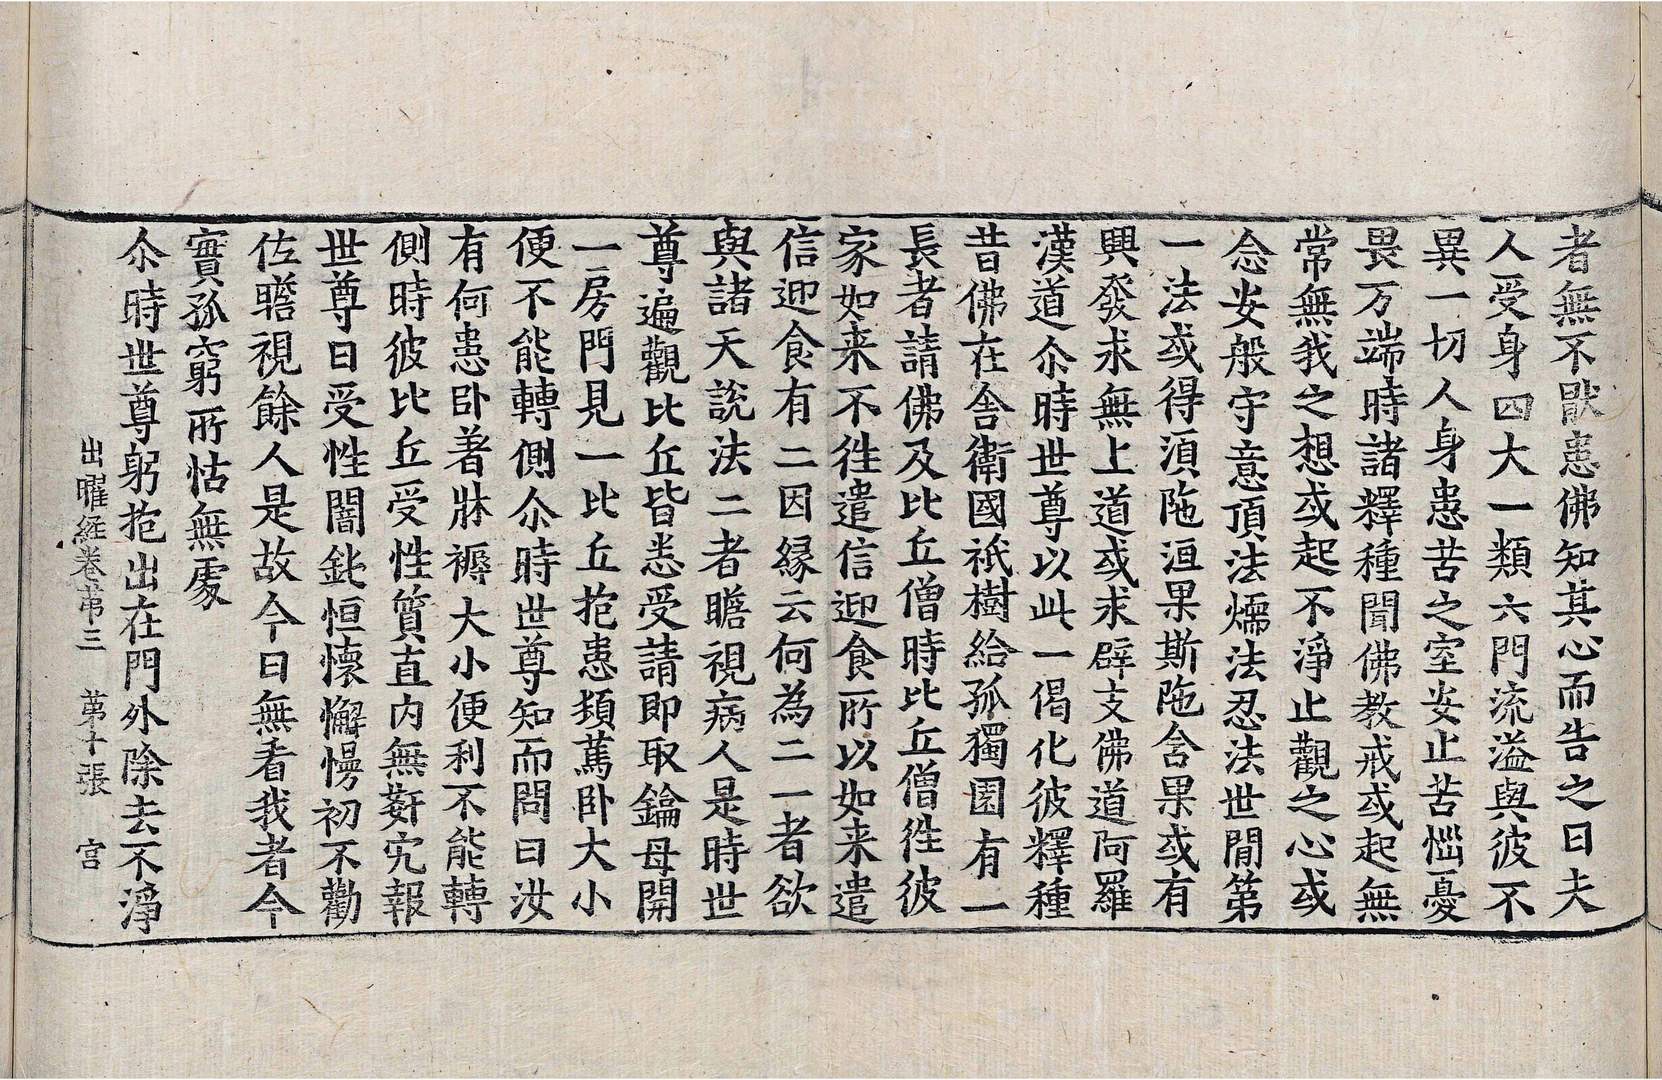 者無不猒患佛知其心而告之曰夫
人受身四大一類六門流溢與彼不
異一切人身患苦之室安止苦惱憂
畏万端時諸釋種聞佛教戒或起無
常無我之想或起不淨止觀之心或
念安般守意頂法煗法忍法世閒第
一法或得湏陁洹果斯陁含果或有
興發求無上道或求辟支佛道阿羅
漢道尒時世尊以此一偈化彼釋種
昔佛在舍衛國祇樹給孤獨園有一
長者請佛及比丘僧時比丘僧徃彼
家如来不徃遣信迎食所以如来遣
信迎食有二因緣云何為二一者欲
與諸天說法二者瞻視病人是時世
尊遍觀比丘皆悉受請即取鑰母開
一房門見一比丘抱患頟篤卧大小
便不能轉側尒時世尊知而問曰汝
有何患卧著牀褥大小便利不能轉
側時彼比丘受性質直内無姧宄報
世尊曰受性闇鈍恒懷懈慢初不勸
佐瞻視餘人是故今日無看我者今
實孤窮所怙無處
尒時世尊躬抱出在門外除去不淨
出曜経卷苐三　苐十張　宫